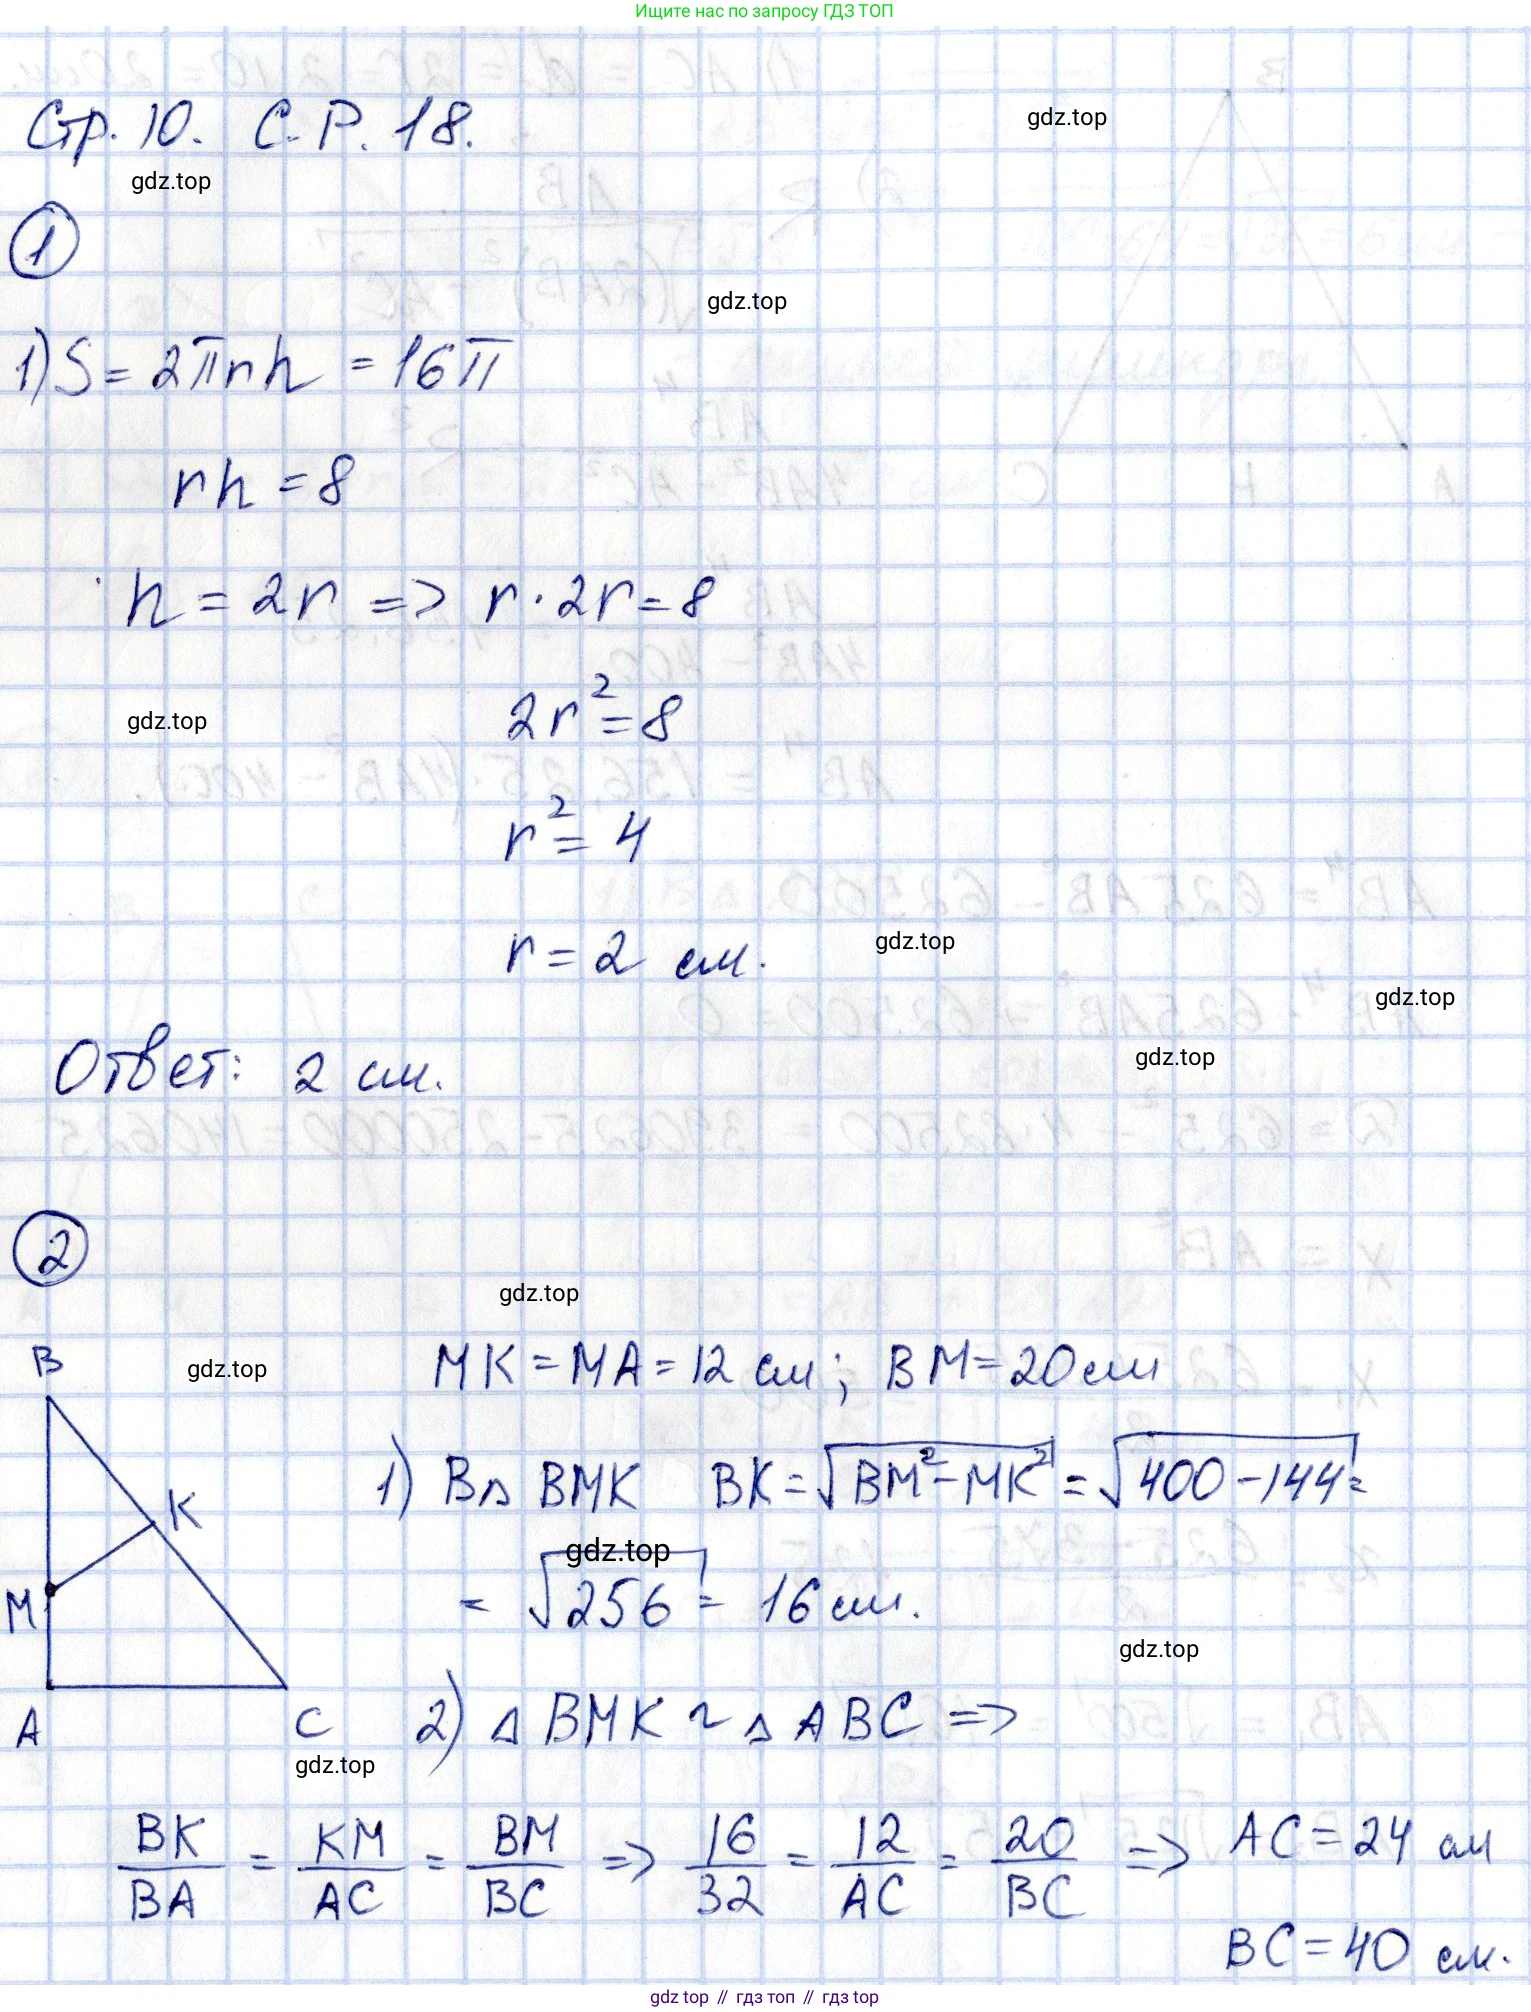 Ищите нас по запросу ГДЗ ТОП
Стр. 10. С.Р. 18.
gdz.top
gdz.top
1
gdz.top
1) S = 2πrh = 16π
rh = 8
h = 2r => r · 2r = 8
gdz.top
2r² = 8
r² = 4
gdz.top
r = 2 см.
gdz.top
gdz.top
Ответ: 2 см.
2
gdz.top
B
gdz.top
MK = MA = 12 см; BM = 20 см
1) В △ BMK BK = √BM² - MK² = √400 - 144 =
K
gdz.top
M
= √256 = 16 см.
gdz.top
A
C
2) △ BMK ~ △ ABC =>
gdz.top
BK/BA = KM/AC = BM/BC => 16/32 = 12/AC = 20/BC => AC = 24 см
BC = 40 см.
gdz top // гдз топ // гдз top